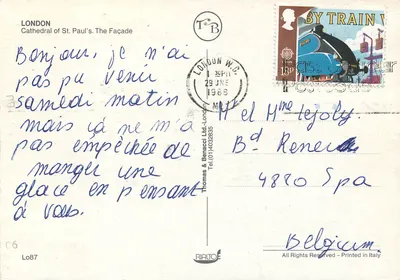 LONDON
Cathedral of St. Paul's. The Façade
Bonjour, je n'ai
pas pu venir
samedi matin
mais ça ne m'a
pas empêchée de
manger une
glace en pensant
à vous.
Lo87
TSB
Thomas & Benacci Ltd.-London
Tel.(01)4032835
RIALTO
LONDON W.C.
29 JNE
1988
BY TRAIN
18p
M et Mme Lejoly
Bd Rener
4880 Spa
Belgium.
All Rights Reserved - Printed in Italy